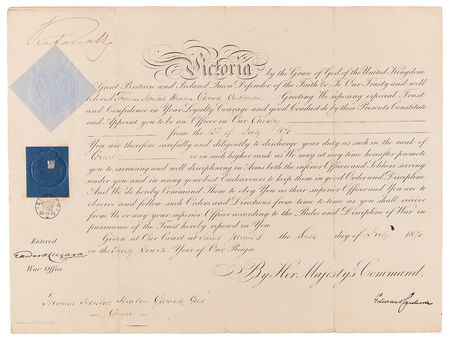 Victoria R
Victoria by the Grace of God of the United Kingdom
of Great Britain and Ireland Queen Defender of the Faith &c. To Our Trusty and well
beloved Thomas Gentleman Greeting We reposing especial Trust
and Confidence in Your Loyalty Courage and good Conduct do by these Presents Constitute
and Appoint you to be an Officer in Our
from the of July
You are therefore carefully and diligently to discharge your duty as such in the rank of
or in such higher rank as We may at any time hereafter promote
you to exercising and well disciplining in Arms both the inferior Officers and Soldiers serving
under you and in using your best Endeavours to keep them in good Order and Discipline
And We do hereby Command them to obey You as their superior Officer and You are to
observe and follow such Orders and Directions from time to time as you shall receive
from Us or any your superior Officer according to the Rules and Discipline of War in
pursuance of the Trust hereby reposed in You
Given at Our Court at Saint James's the day of July
in the Year of Our Reign.
By Her Majesty's Command.
Entered
War Office
Thomas
Edward Cardwell